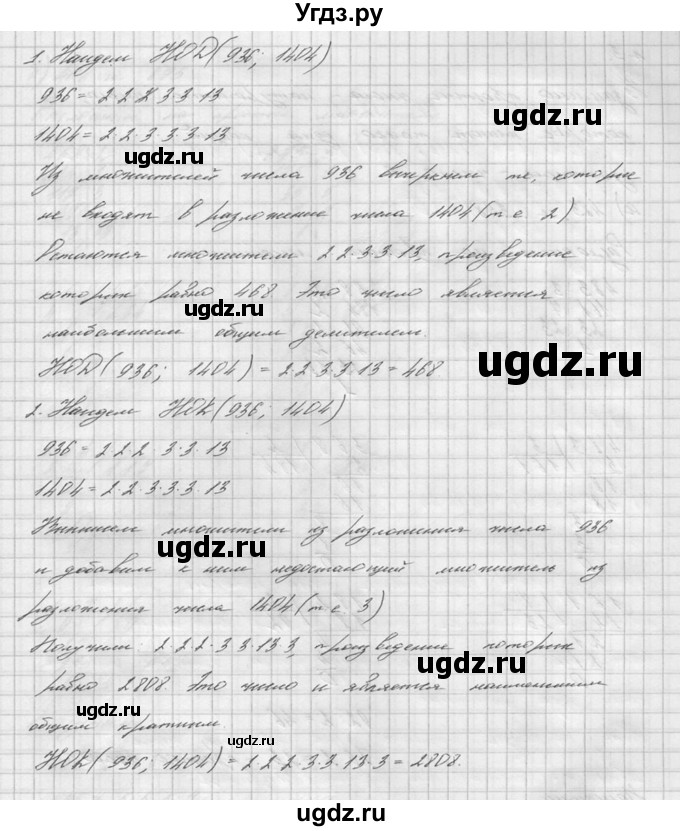 Угдз.ру
1. Найдем НОД(936; 1404)
936 = 2·2·2·3·3·13
ugdz.ru
1404 = 2·2·3·3·3·13
ugdz.ru
Из множителей числа 936 вычеркнем те, которые
не входят в разложение числа 1404 (т.е 2)
ugdz.ru
Остаются множители 2·2·3·3·13, произведение
которых равно 468. Это число является
ugdz.ru
наибольшим общим делителем.
ugdz.ru
НОД(936; 1404) = 2·2·3·3·13 = 468
2. Найдем НОК(936; 1404)
ugdz.ru
936 = 2·2·2·3·3·13
1404 = 2·2·3·3·3·13
Выпишем множители из разложения числа 936
ugdz.ru
и добавим к ним недостающий множитель из
ugdz.ru
разложения числа 1404 (т.е 3)
Получили: 2·2·2·3·3·13·3, произведение которых
равно 2808. Это число и является наименьшим
ugdz.ru
общим кратным.
ugdz.ru
НОК(936; 1404) = 2·2·2·3·3·13·3 = 2808.
ugdz.ru